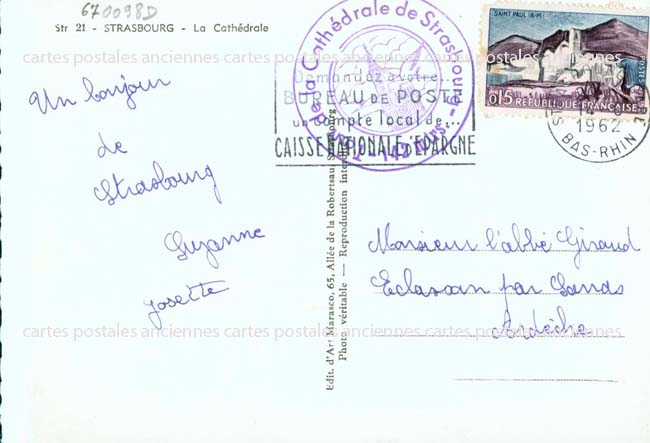 670098D
Str 21 - STRASBOURG - La Cathédrale
cartes postales anciennes cartes postales anciennes cartes postales anciennes
Un bonjour
de
Strasbourg
Suzanne
Josette
de la Cathédrale de Strasbourg
142 m
Demandez à votre
BUREAU DE POSTE
un compte local de...
CAISSE NATIONALE D'ÉPARGNE
SAINT PAUL (A-M)
POSTES
0,15 RÉPUBLIQUE FRANÇAISE
1962
BAS-RHIN
Edit. d'Art Marasco, 65, Allée de la Robertsau, Strasbourg
Photo véritable — Reproduction interdite
Monsieur l'abbé Giraud
Eclassan par Sarras
Ardèche
cartes postales anciennes cartes postales anciennes cartes postales anciennes